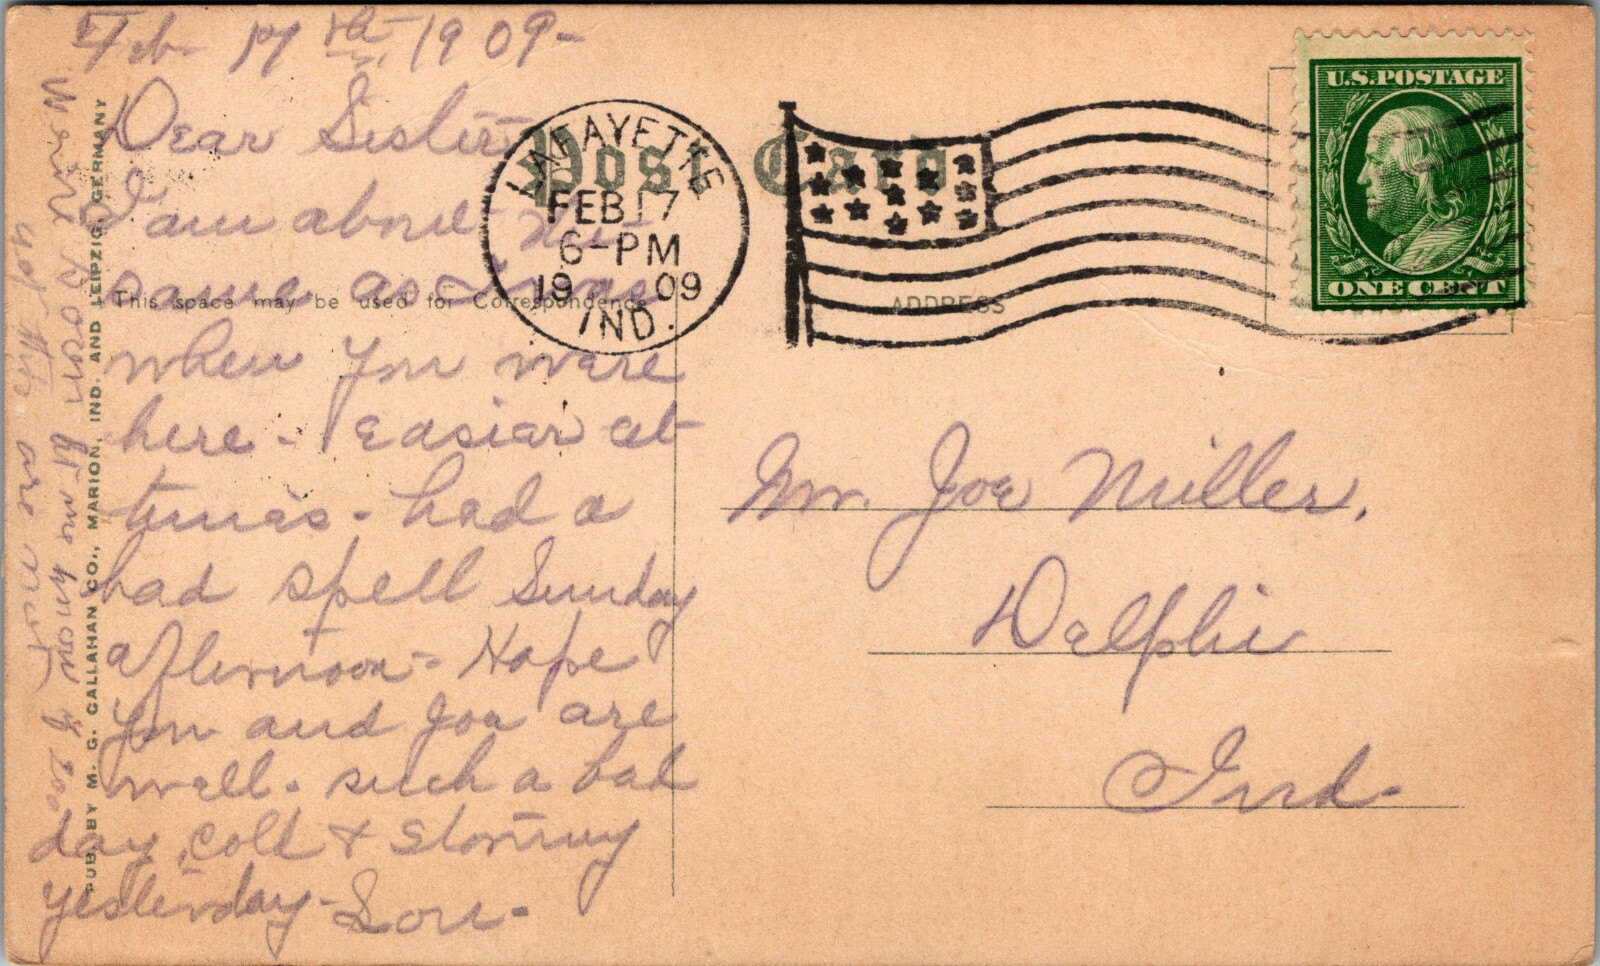 Feb 17th, 1909-
Dear Sister
I am about the
same as I was
when you were
here - easier at
times - had a
bad spell Sunday
afternoon - Hope
you and Joe are
well - such a bad
day, cold & stormy
yesterday - Lou -
Write soon let me know if
you are not
Post Card
This space may be used for Correspondence
ADDRESS
LAFAYETTE
FEB 17
6-PM
1909
IND.
U.S. POSTAGE
ONE CENT
Mr. Joe Miller,
Delphi
Ind-
PUB. BY M. G. CALLAHAN CO., MARION, IND. AND LEIPZIG, GERMANY